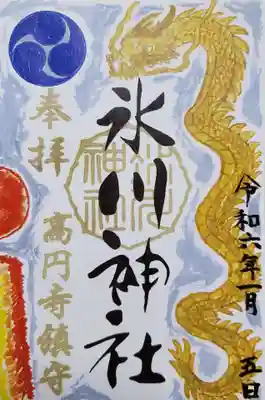 令和六年一月五日
氷川神社
氷川神社
奉拝
高円寺鎮守